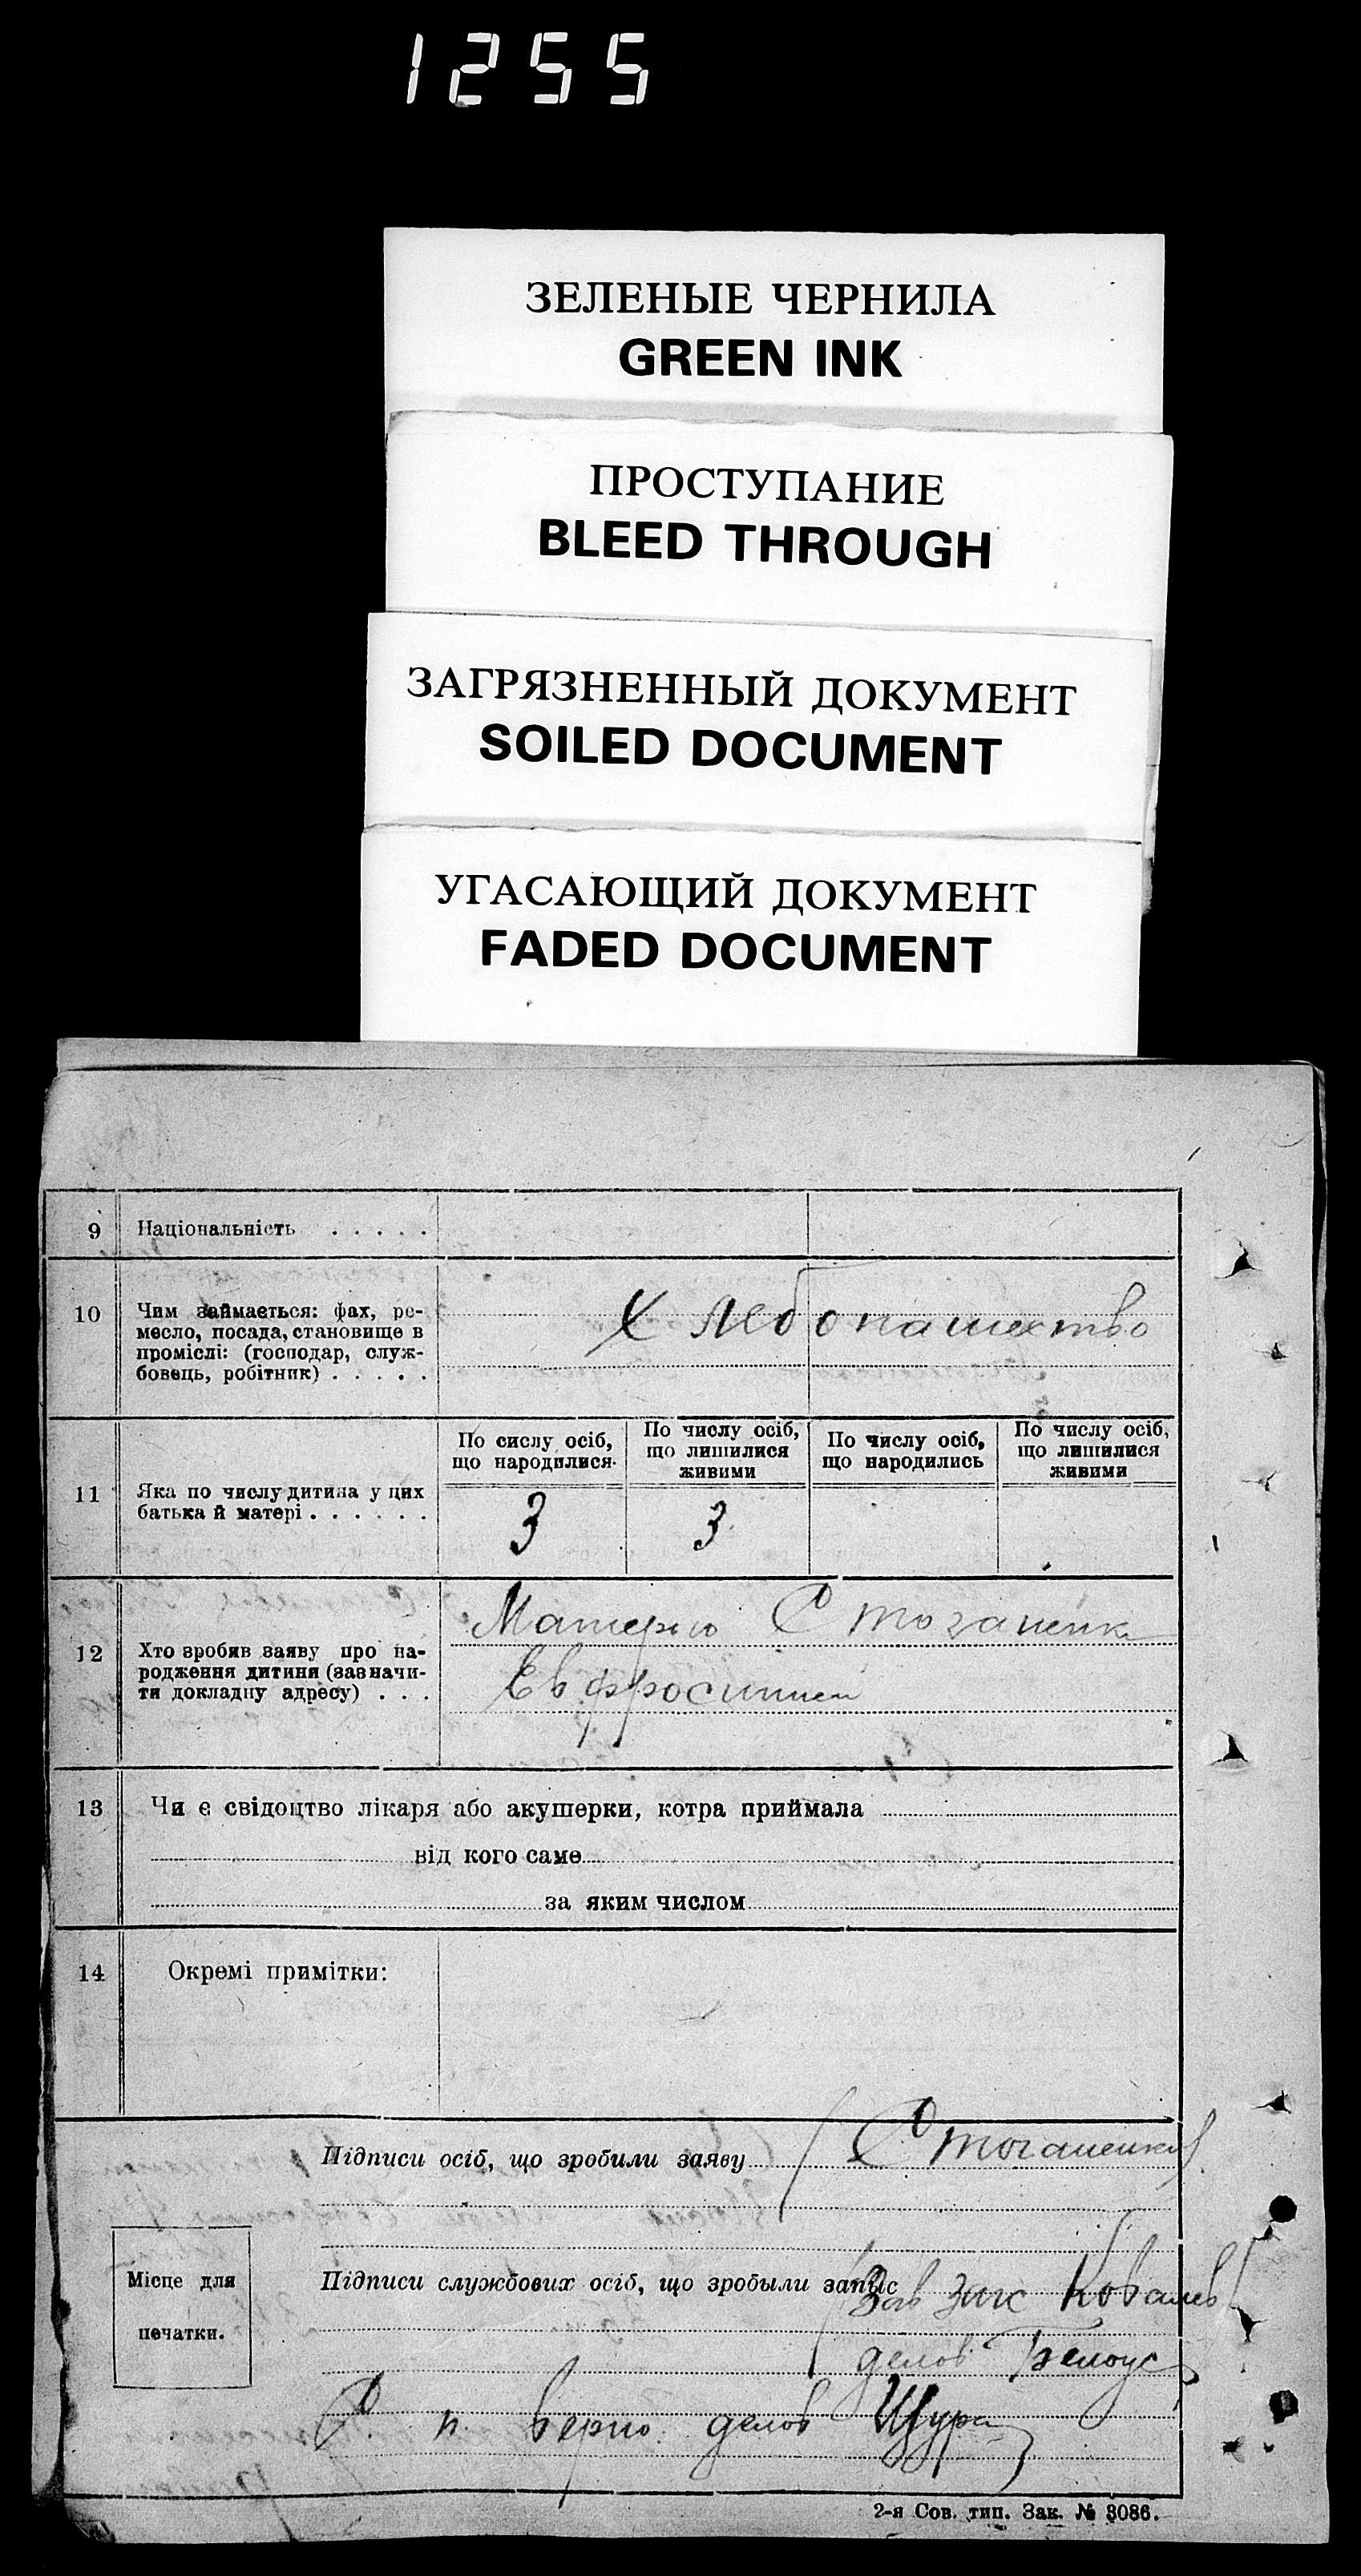 1255
ЗЕЛЕНЫЕ ЧЕРНИЛА
GREEN INK
ПРОСТУПАНИЕ
BLEED THROUGH
ЗАГРЯЗНЕННЫЙ ДОКУМЕНТ
SOILED DOCUMENT
УГАСАЮЩИЙ ДОКУМЕНТ
FADED DOCUMENT
9 Національність . . . . .
10 Чим займається: фах, ре-
месло, посада, становище в
проміслі: (господар, служ-
бовець, робітник) . . . . .
Хлебопашество
11 Яка по числу дитина у цих
батька й матері . . . . . .
По сислу осіб,
що народилися.
По числу осіб,
що лишилися
живими
По числу осіб,
що народились
По числу осіб,
що лишилися
живими
3 3
12 Хто зробив заяву про на-
родження дитини (зазначи-
ти докладну адресу) . . .
Матерью Стоганенко
Евфросинией
13 Чи є свідоцтво лікаря або акушерки, котра приймала
від кого саме
за яким числом
14 Окремі примітки:
Підписи осіб, що зробили заяву (Стоганенко)
Місце для
печатки.
Підписи службових осіб, що зробыли запис
(Зав Загс Ковалев)
делов Белоус
С п. верно делов Щур
2-я Сов. тип. Зак. № 3086.